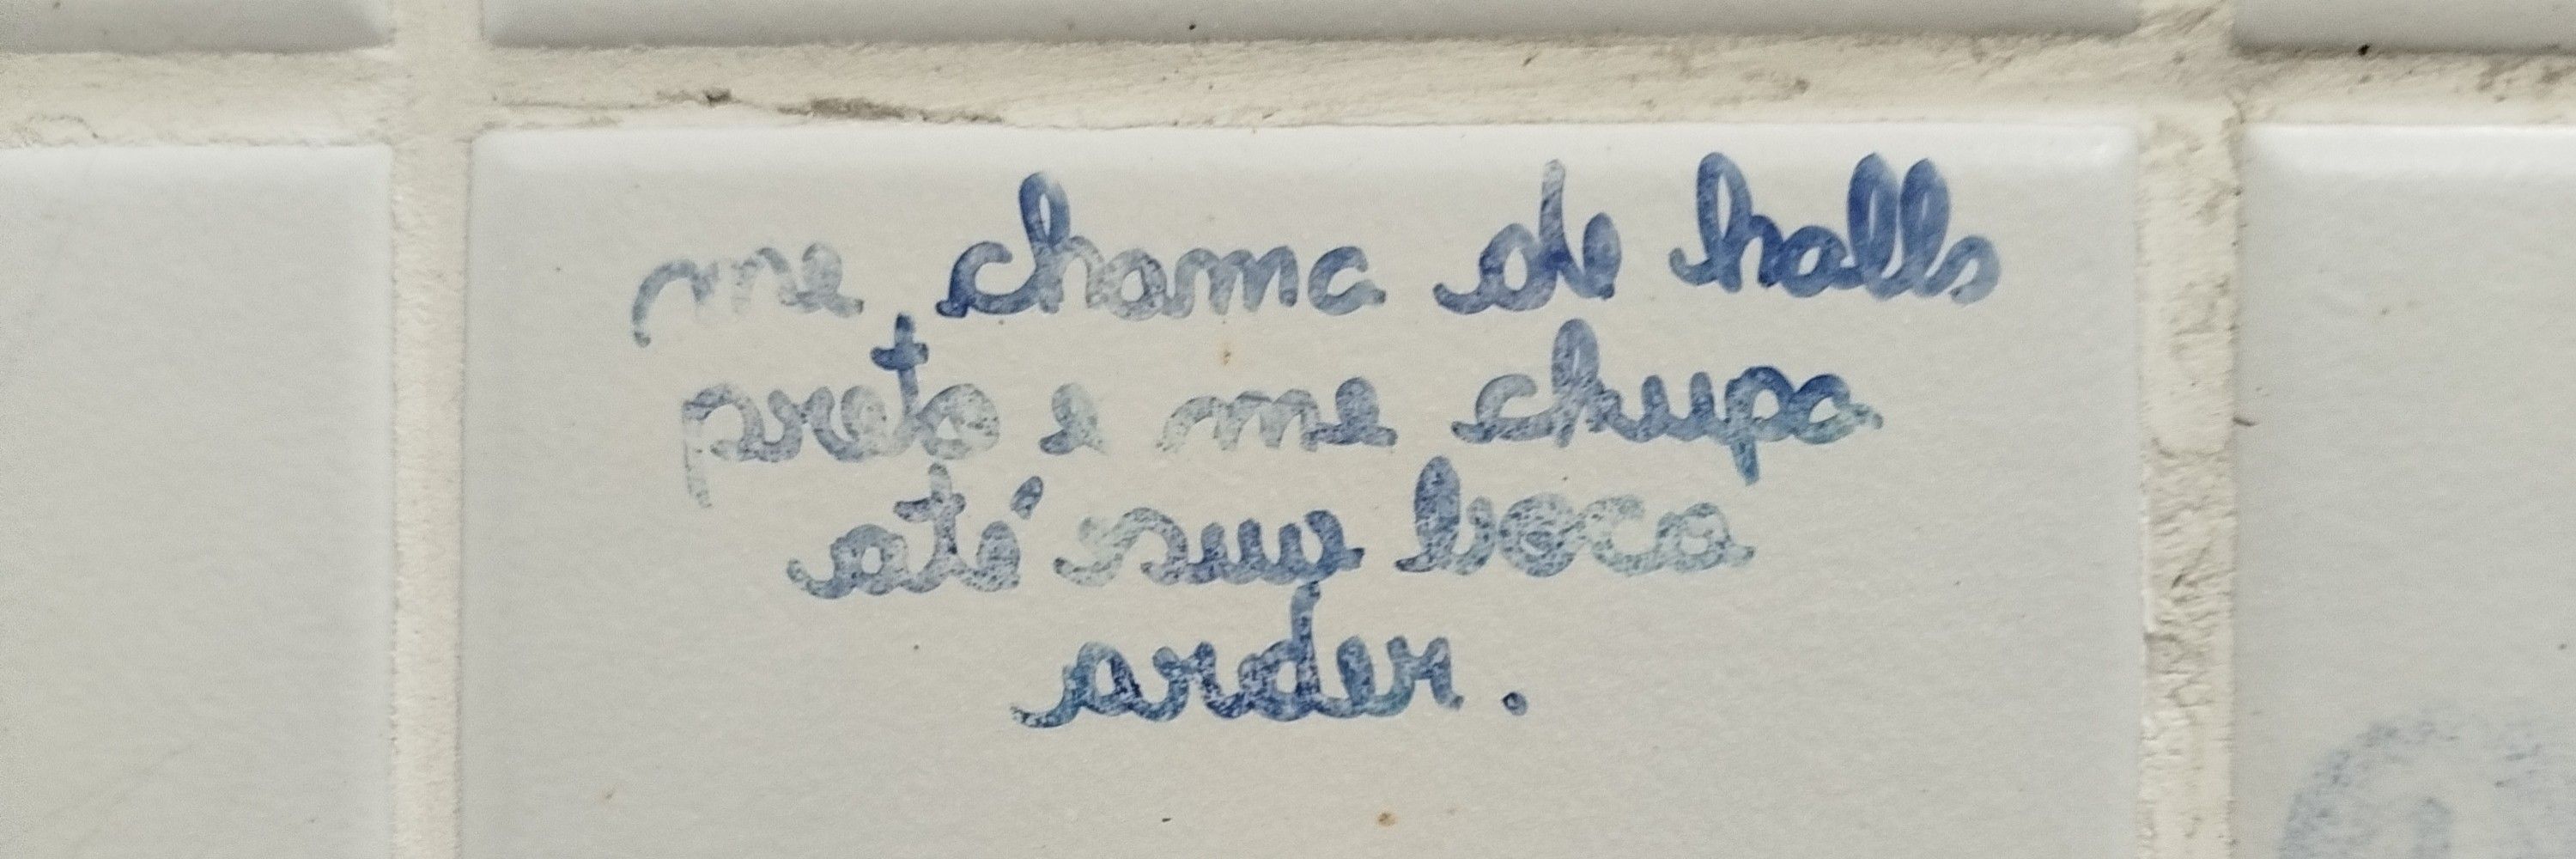 me chama de halls
preto e me chupa
até sua boca
arder.